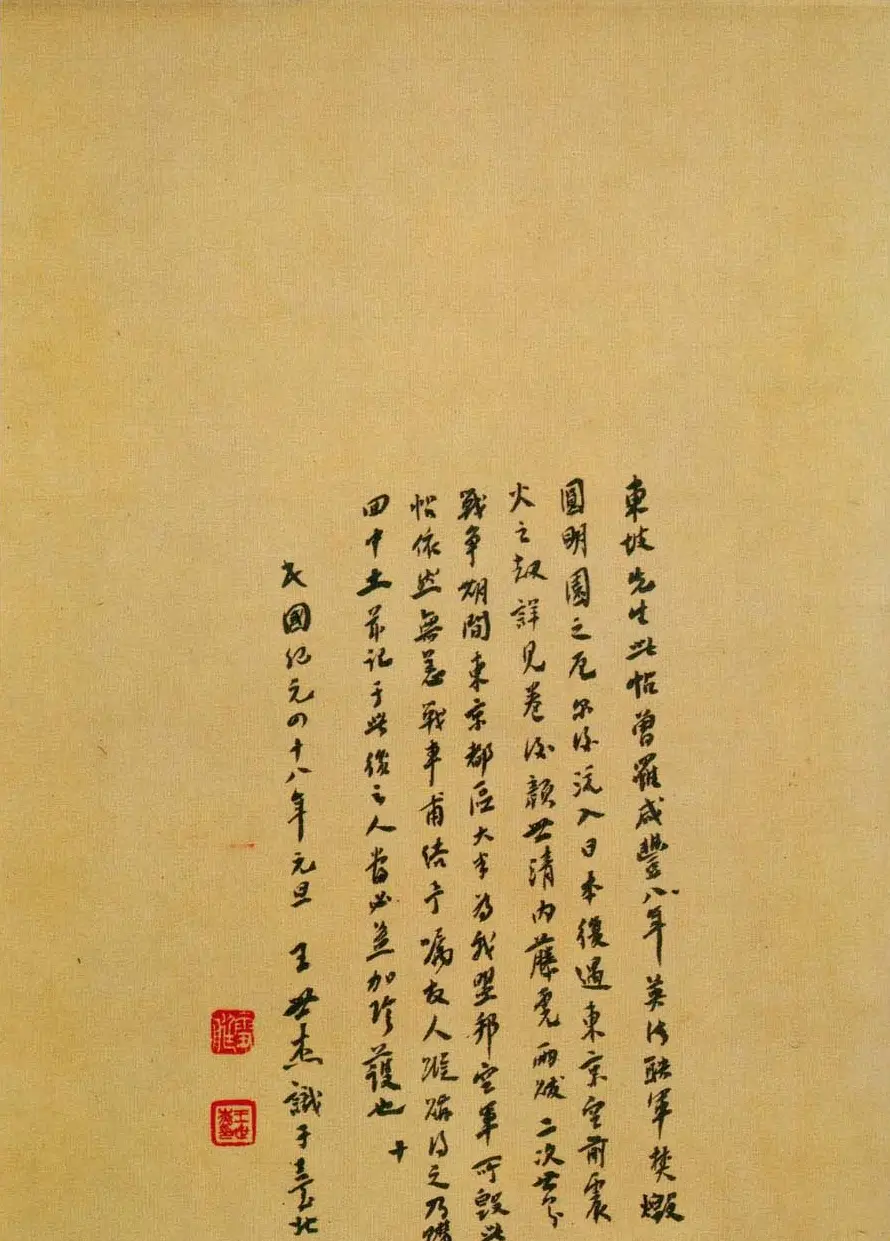 東坡先生此帖曾罹咸豐八年英法聯軍焚燬
圓明園之厄嗣後流入日本復遇東京空前震
火之劫詳見卷後顏世清內藤虎兩跋二次世界
戰爭期間東京都區大半為我盟邦空軍所毀此
帖依然無恙戰事甫結予囑友人蹤跡得之乃購
回中土並記于此後之人當必益加珍護也 十
民國紀元四十八年元旦 王世杰識于臺北
雪艇
王世杰